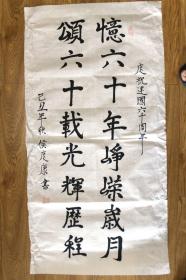 庆祝建國六十周年
憶六十年崢嵘歲月
頌六十載光輝歷程
己丑年秋侯庆康書